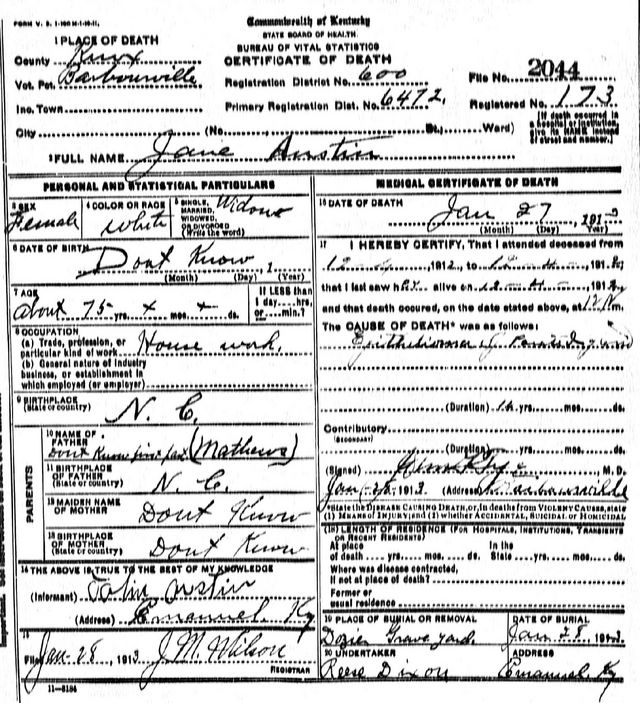 FORM V. S. 1-100 M-1-10-11.
Commonwealth of Kentucky
STATE BOARD OF HEALTH.
BUREAU OF VITAL STATISTICS
CERTIFICATE OF DEATH
1 PLACE OF DEATH
County Knox
Vot. Pct. Barbourville
Inc. Town
City (No. St., Ward)
Registration District No. 600
Primary Registration Dist. No. 6472.
File No. 2044
Registered No. 173
[If death occurred in a hospital or institution, give its NAME instead of street and number.]
2 FULL NAME Jane Austin
PERSONAL AND STATISTICAL PARTICULARS
3 SEX Female
4 COLOR OR RACE white
5 SINGLE, MARRIED, WIDOWED OR DIVORCED (Write the word) Widow
6 DATE OF BIRTH Dont Know, 1
(Month) (Day) (Year)
7 AGE about 75 yrs. x mos. x ds.
If LESS than 1 day....hrs. or....min.?
8 OCCUPATION
(a) Trade, profession, or particular kind of work House work.
(b) General nature of industry business, or establishment in which employed (or employer)
9 BIRTHPLACE (State or country) N. C.
PARENTS
10 NAME OF FATHER Dont Know first (Mathews)
11 BIRTHPLACE OF FATHER (State or country) N. C.
12 MAIDEN NAME OF MOTHER Dont Know
13 BIRTHPLACE OF MOTHER (State or country) Dont Know
14 THE ABOVE IS TRUE TO THE BEST OF MY KNOWLEDGE
(Informant)
(Address) Emanuel Ky
15
Filed Jan-28, 1913 J. M. Wilson
REGISTRAR
11-3184
MEDICAL CERTIFICATE OF DEATH
16 DATE OF DEATH Jan 27, 1913
(Month) (Day) (Year)
17 I HEREBY CERTIFY, That I attended deceased from
1912, to
that I last saw her alive on
and that death occured, on the date stated above, at 12
The CAUSE OF DEATH* was as follows:
Epithelioma
(Duration) yrs. mos. ds.
Contributory
(SECONDARY)
(Duration) yrs. mos. ds.
(Signed) M. D.
Jan 1913 (Address) Barbourville
*State the DISEASE CAUSING DEATH, or, in deaths from VIOLENT CAUSES, state (1) MEANS OF INJURY; and (2) whether ACCIDENTAL, SUICIDAL or HOMICIDAL.
(18) LENGTH OF RESIDENCE (FOR HOSPITALS, INSTITUTIONS, TRANSIENTS OR RECENT RESIDENTS)
At place of death yrs. mos. ds. In the State yrs. mos. ds.
Where was disease contracted, If not at place of death?
Former or usual residence
19 PLACE OF BURIAL OR REMOVAL Dozier Grave yard
DATE OF BURIAL Jan 28, 1913
20 UNDERTAKER Reese Dixon
ADDRESS Emanuel Ky